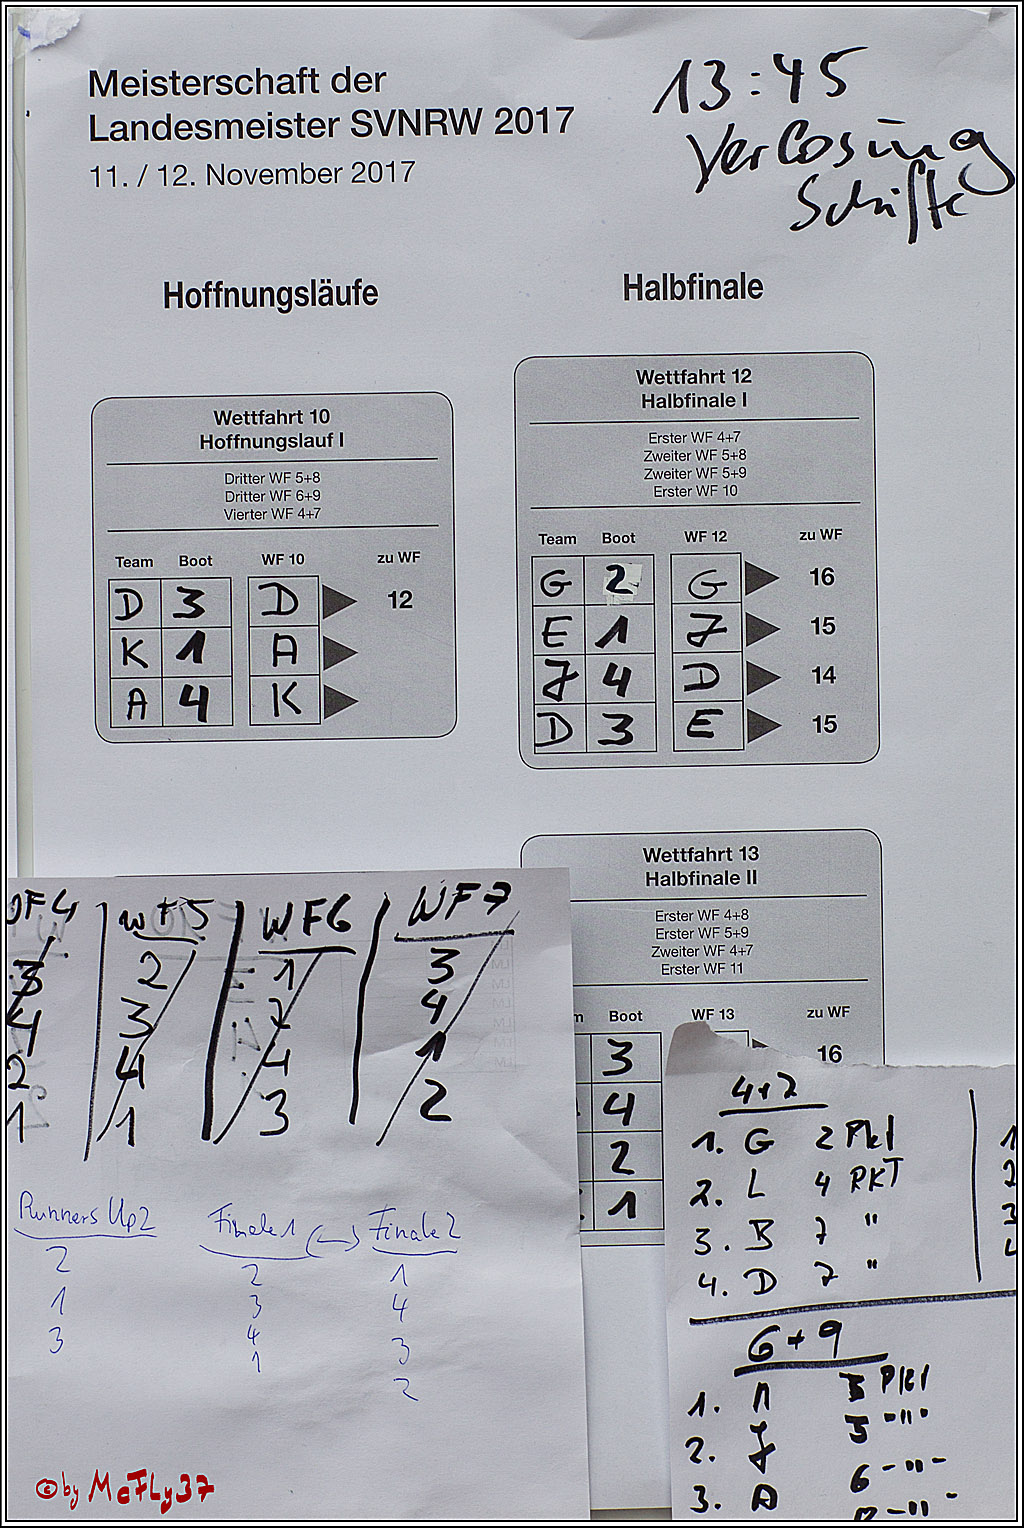 Meisterschaft der
Landesmeister SVNRW 2017
11. / 12. November 2017
13:45
Verlosung
Schiffe
Hoffnungsläufe
Wettfahrt 10
Hoffnungslauf I
Dritter WF 5+8
Dritter WF 6+9
Vierter WF 4+7
Team Boot WF 10 zu WF
D 3 D 12
K 1 A
A 4 K
Halbfinale
Wettfahrt 12
Halbfinale I
Erster WF 4+7
Zweiter WF 5+8
Zweiter WF 5+9
Erster WF 10
Team Boot WF 12 zu WF
G 2 G 16
E 1 J 15
J 4 D 14
D 3 E 15
Wettfahrt 13
Halbfinale II
Erster WF 4+8
Erster WF 5+9
Zweiter WF 4+7
Erster WF 11
Boot WF 13 zu WF
3 16
4
2
1
WF5 WF6 WF7
3 2 1 3
4 3 2 4
2 4 4 1
1 1 3 2
Runners Up2 Finale1 Finale2
2 2 1
1 3 4
3 4 3
1 2
4+7
1. G 2 Pkt
2. L 4 PKT
3. B 7 "
4. D 7 "
6+9
1. 3 Pkt
2. J 5 -"-
3. A 6 -"-
© by McFLy37